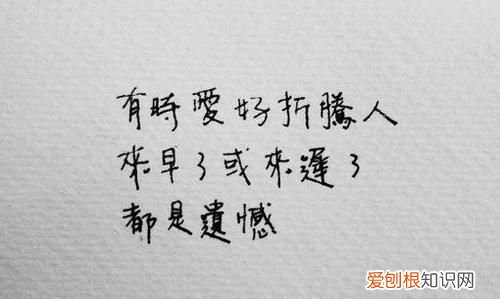 有時愛好折騰人
來早了或來遲了
都是遺憾
爱刨根知识网
www.baogenzhishi.com